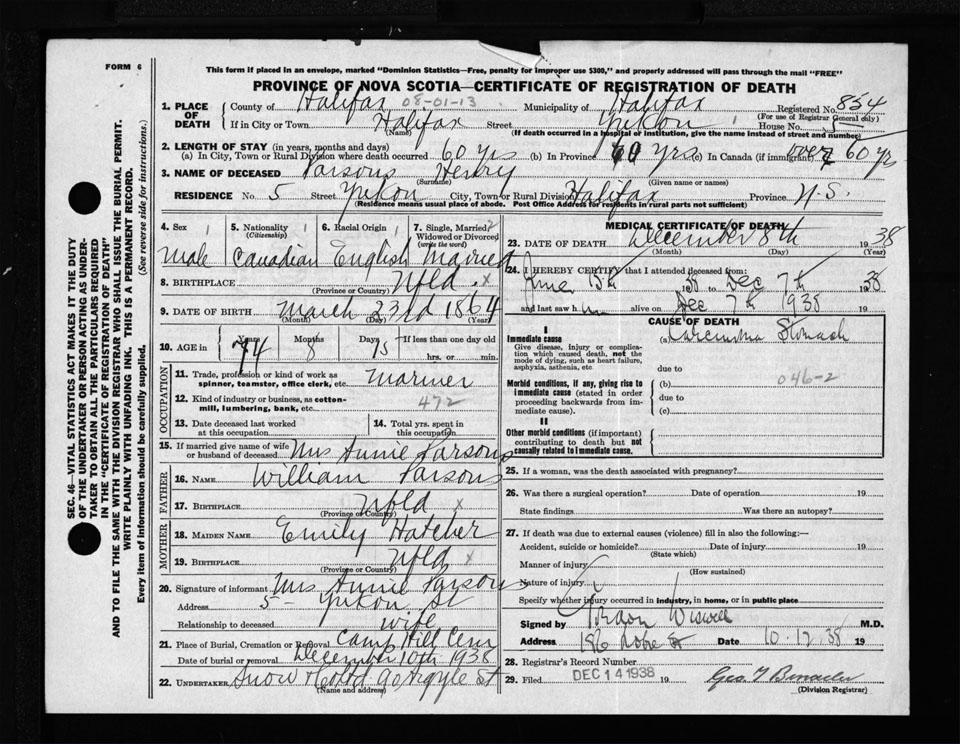 FORM 6
This form if placed in an envelope, marked "Dominion Statistics—Free, penalty for improper use $300," and properly addressed will pass through the mail "FREE"
PROVINCE OF NOVA SCOTIA—CERTIFICATE OF REGISTRATION OF DEATH
1. PLACE OF DEATH County of Halifax 08-01-13 Municipality of Halifax Registered No. 854
(For use of Registrar General only)
If in City or Town Halifax Street Yukon House No. 5
(Name) (If death occurred in a hospital or institution, give the name instead of street and number)
2. LENGTH OF STAY (in years, months and days)
(a) In City, Town or Rural Division where death occurred 60 yrs (b) In Province 60 yrs (c) In Canada (if immigrant) over 60 yrs
3. NAME OF DECEASED Parsons Henry
(Surname) (Given name or names)
RESIDENCE No. 5 Street Yukon City, Town or Rural Division Halifax Province N.S.
(Residence means usual place of abode. Post Office Address for residents in rural parts not sufficient)
4. Sex 1 5. Nationality 1 (Citizenship) 6. Racial Origin 1 7. Single, Married, 2 Widowed or Divorced (write the word)
Male Canadian English Married
8. BIRTHPLACE Nfld. x
(Province or Country)
9. DATE OF BIRTH March 23rd 1864
(Month) (Day) (Year)
10. AGE in Years Months Days If less than one day old
74 8 15 hrs. or min.
OCCUPATION
11. Trade, profession or kind of work as spinner, teamster, office clerk, etc. Mariner
12. Kind of industry or business, as cotton-mill, lumbering, bank, etc. 472
13. Date deceased last worked at this occupation
14. Total yrs. spent in this occupation
15. If married give name of wife or husband of deceased Mrs Annie Parsons
FATHER
16. NAME William Parsons
17. BIRTHPLACE Nfld x
(Province or Country)
MOTHER
18. MAIDEN NAME Emily Hatcher
19. BIRTHPLACE Nfld x
(Province or Country)
20. Signature of informant Mrs Annie Parsons
Address 5 - Yukon St
Relationship to deceased wife
21. Place of Burial, Cremation or Removal Camp Hill Cem
Date of burial or removal December 10th 1938
22. UNDERTAKER Snow & Co Ltd 90 Argyle St
(Name and address)
MEDICAL CERTIFICATE OF DEATH
23. DATE OF DEATH December 8th 1938
(Month) (Day) (Year)
24. I HEREBY CERTIFY that I attended deceased from:
June 15th 1938 to Dec 7th 1938
and last saw him alive on Dec 7th 1938
CAUSE OF DEATH
I
Immediate cause (a) Carcinoma Stomach
Give disease, injury or complication which caused death, not the mode of dying, such as heart failure, asphyxia, asthenia, etc.
due to
Morbid conditions, if any, giving rise to immediate cause (stated in order proceeding backwards from immediate cause).
(b) 046-2
due to
(c)
II
Other morbid conditions (if important) contributing to death but not causally related to immediate cause.
25. If a woman, was the death associated with pregnancy?
26. Was there a surgical operation? Date of operation 19
State findings Was there an autopsy?
27. If death was due to external causes (violence) fill in also the following:—
Accident, suicide or homicide? Date of injury 19
(State which)
Manner of injury
(How sustained)
Nature of injury
Specify whether injury occurred in industry, in home, or in public place
Signed by Wiswell M.D.
Address 186 Robie St Date 10.12.38 19
28. Registrar's Record Number
29. Filed DEC 14 1938 19
(Division Registrar)
SEC. 46—VITAL STATISTICS ACT MAKES IT THE DUTY
OF THE UNDERTAKER OR PERSON ACTING AS UNDER-
TAKER TO OBTAIN ALL THE PARTICULARS REQUIRED
IN THE "CERTIFICATE OF REGISTRATION OF DEATH"
AND TO FILE THE SAME WITH THE DIVISION REGISTRAR WHO SHALL ISSUE THE BURIAL PERMIT.
WRITE PLAINLY WITH UNFADING INK. THIS IS A PERMANENT RECORD.
Every item of information should be carefully supplied. (See reverse side for instructions.)